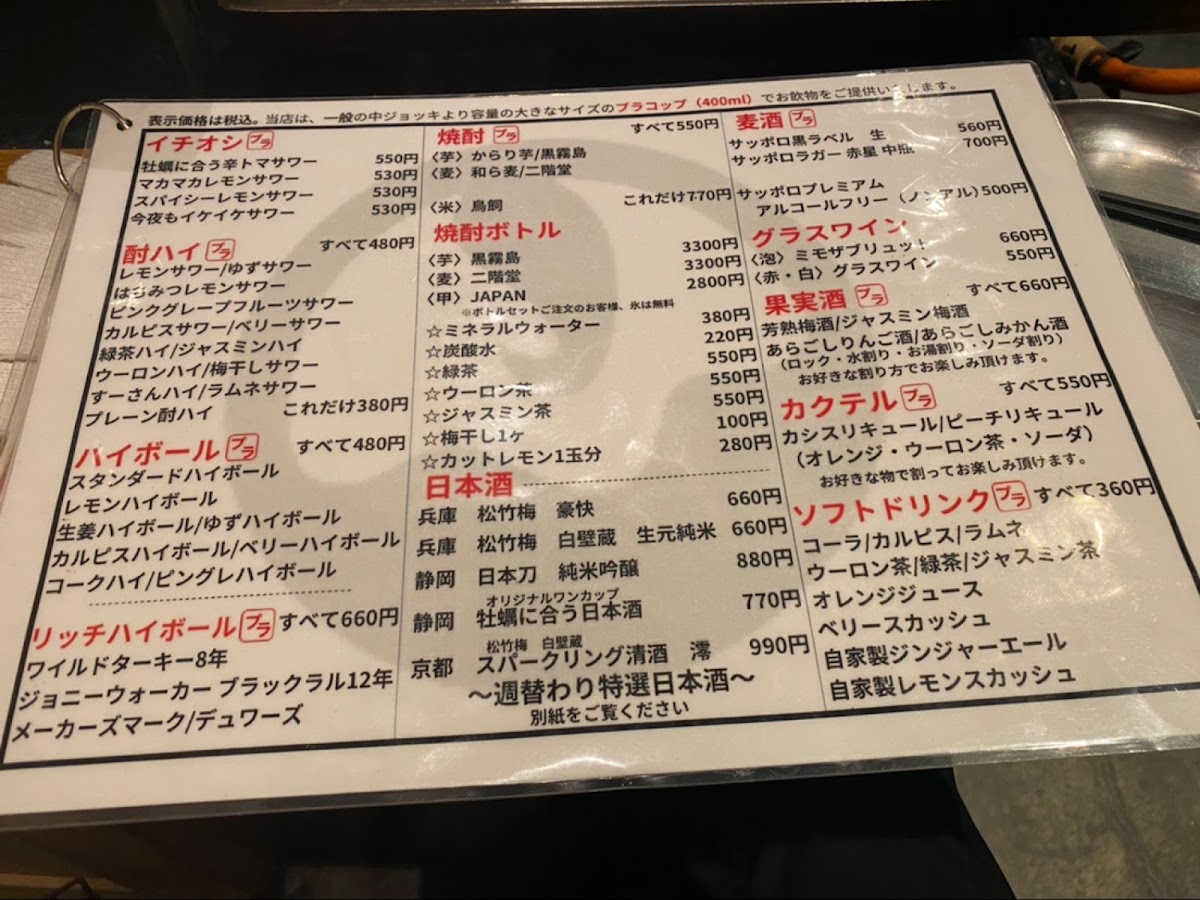 表示価格は税込。当店は、一般の中ジョッキより容量の大きなサイズのプラコップ（400ml）でお飲物をご提供いたします。
イチオシ プラ
牡蠣に合う辛トマサワー 550円
マカマカレモンサワー 530円
スパイシーレモンサワー 530円
今夜もイケイケサワー 530円
酎ハイ プラ すべて480円
レモンサワー/ゆずサワー
はちみつレモンサワー
ピンクグレープフルーツサワー
カルピスサワー/ベリーサワー
緑茶ハイ/ジャスミンハイ
ウーロンハイ/梅干しサワー
すーさんハイ/ラムネサワー
プレーン酎ハイ これだけ380円
ハイボール プラ すべて480円
スタンダードハイボール
レモンハイボール
生姜ハイボール/ゆずハイボール
カルピスハイボール/ベリーハイボール
コークハイ/ピングレハイボール
リッチハイボール プラ すべて660円
ワイルドターキー8年
ジョニーウォーカー ブラックラル12年
メーカーズマーク/デュワーズ
焼酎 プラ すべて550円
〈芋〉からり芋/黒霧島
〈麦〉和ら麦/二階堂
〈米〉鳥飼 これだけ770円
焼酎ボトル
〈芋〉黒霧島 3300円
〈麦〉二階堂 3300円
〈甲〉JAPAN 2800円
※ボトルセットご注文のお客様、氷は無料
☆ミネラルウォーター 380円
☆炭酸水 220円
☆緑茶 550円
☆ウーロン茶 550円
☆ジャスミン茶 550円
☆梅干し1ヶ 100円
☆カットレモン1玉分 280円
日本酒
兵庫 松竹梅 豪快 660円
兵庫 松竹梅 白壁蔵 生元純米 660円
静岡 日本刀 純米吟醸 880円
オリジナルワンカップ
静岡 牡蠣に合う日本酒 770円
松竹梅 白壁蔵
京都 スパークリング清酒 澪 990円
〜週替わり特選日本酒〜
別紙をご覧ください
麦酒 プラ
サッポロ黒ラベル 生 560円
サッポロラガー 赤星 中瓶 700円
サッポロプレミアム
アルコールフリー（ノンアル）500円
グラスワイン
〈泡〉ミモザブリュット 660円
〈赤・白〉グラスワイン 550円
果実酒 プラ すべて660円
芳熟梅酒/ジャスミン梅酒
あらごしりんご酒/あらごしみかん酒
（ロック・水割り・お湯割り・ソーダ割り）
お好きな割り方でお楽しみ頂けます。
カクテル プラ すべて550円
カシスリキュール/ピーチリキュール
（オレンジ・ウーロン茶・ソーダ）
お好きな物で割ってお楽しみ頂けます。
ソフトドリンク プラ すべて360円
コーラ/カルピス/ラムネ
ウーロン茶/緑茶/ジャスミン茶
オレンジジュース
ベリースカッシュ
自家製ジンジャーエール
自家製レモンスカッシュ